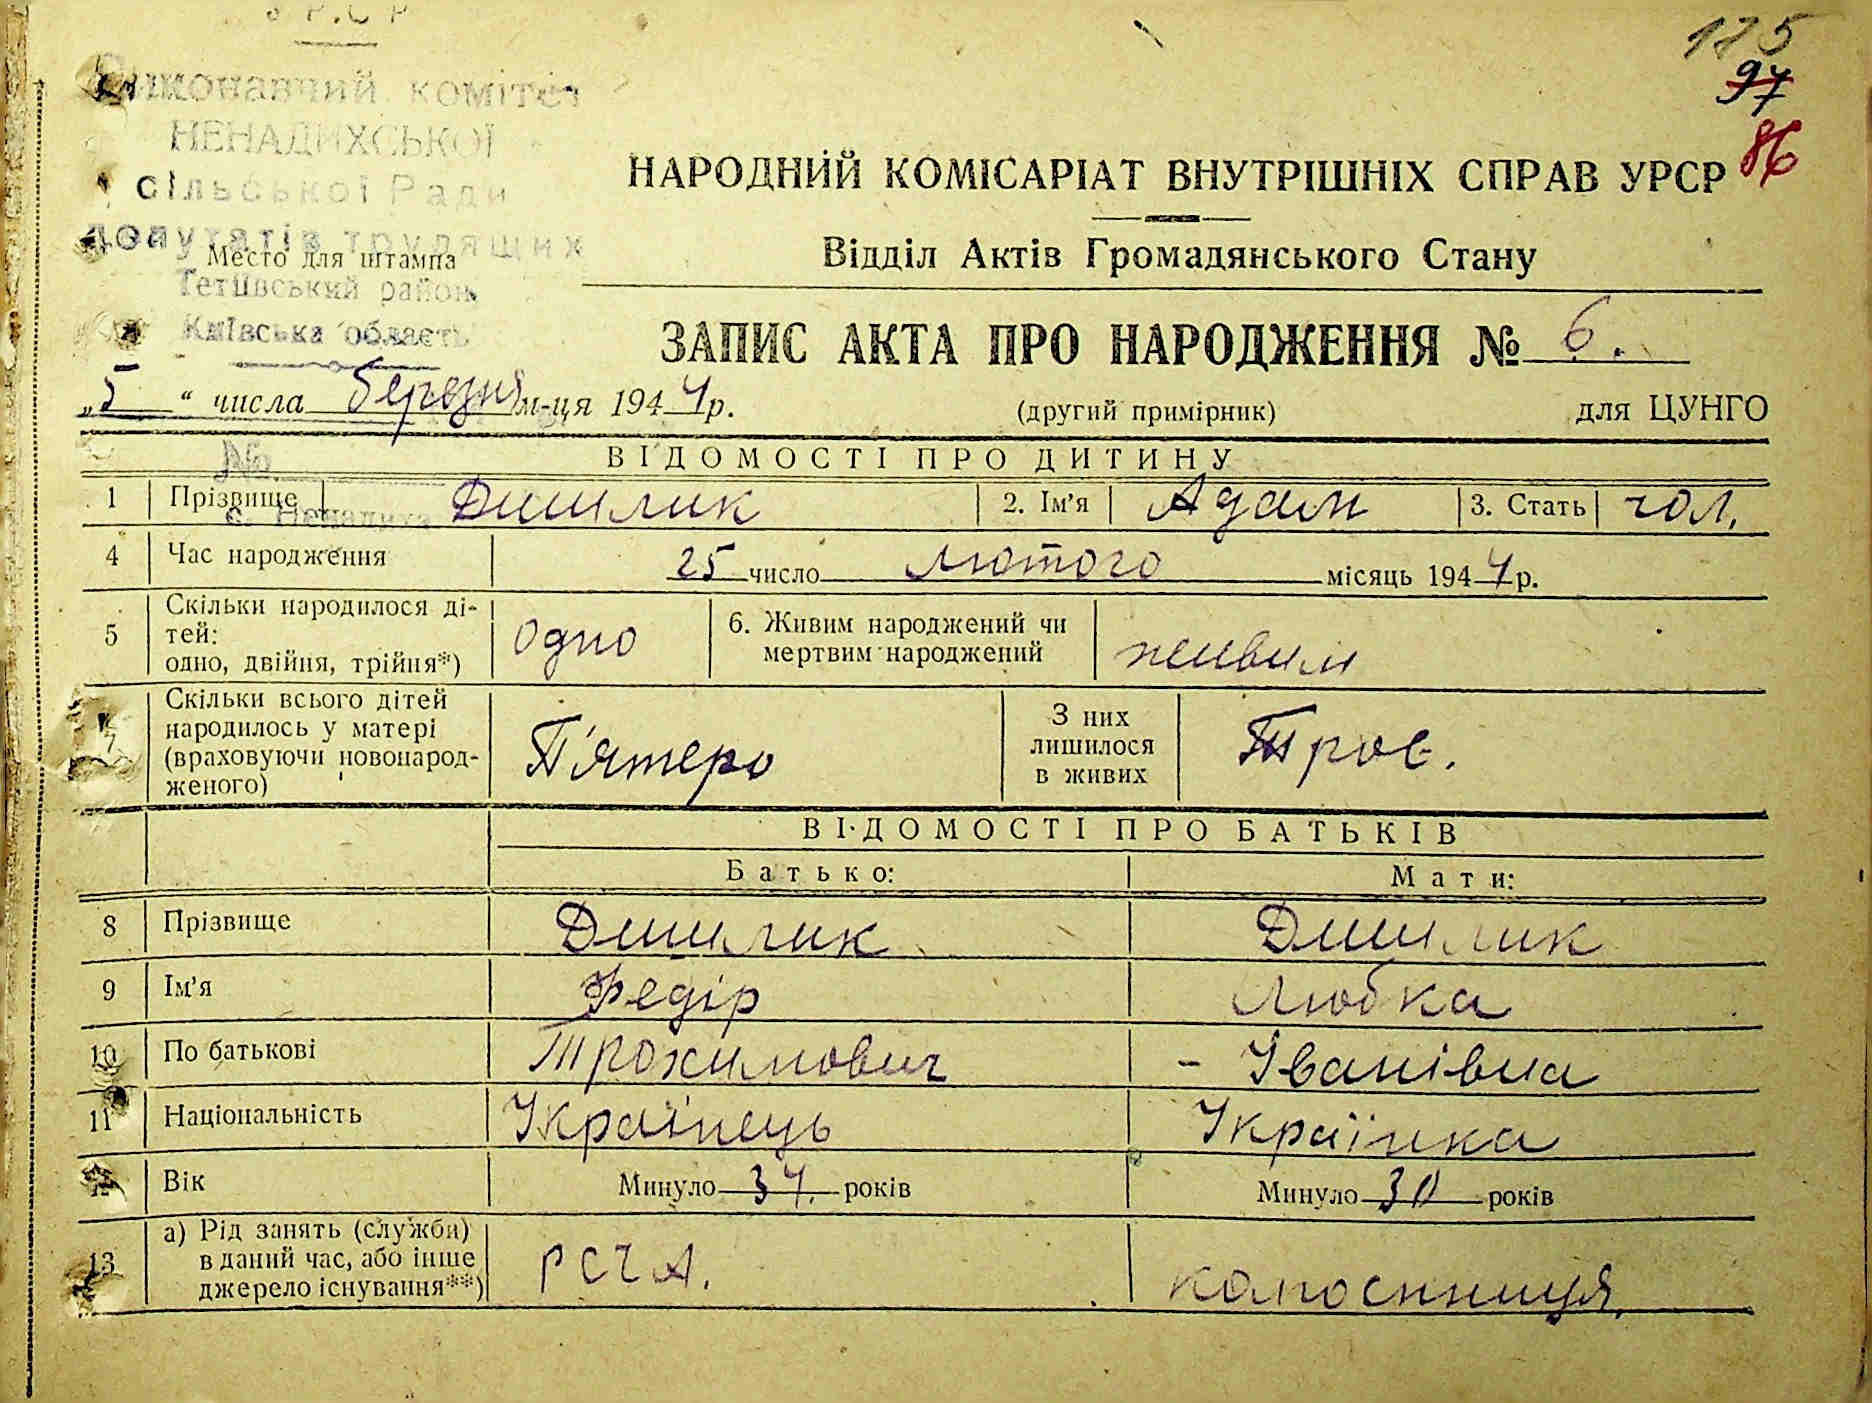 УРСР
125
97
86
Виконавчий комітет
НЕНАДИХСЬКОЇ
сільської Ради
депутатів трудящих
Место для штампа
Тетіївський район
Київська область
№
с. Ненадиха
НАРОДНИЙ КОМІСАРІАТ ВНУТРІШНІХ СПРАВ УРСР
Відділ Актів Громадянського Стану
ЗАПИС АКТА ПРО НАРОДЖЕННЯ № 6.
„5“ числа березня м-ця 1944 р.
(другий примірник)
для ЦУНГО
ВІДОМОСТІ ПРО ДИТИНУ
1 Прізвище Дишлик 2. Ім'я Адам 3. Стать чол.
4 Час народження 25 число лютого місяць 1944 р.
5 Скільки народилося ді-
тей:
одно, двійня, трійня*) Одно
6. Живим народжений чи
мертвим народжений живим
7 Скільки всього дітей
народилось у матері
(враховуючи новонарод-
женого) П'ятеро
З них
лишилося
в живих Троє.
ВІДОМОСТІ ПРО БАТЬКІВ
Батько: Мати:
8 Прізвище Дишлик Дишлик
9 Ім'я Федір Любка
10 По батькові Трохимович - Іванівна
11 Національність Українець Українка
12 Вік Минуло 34. років Минуло 30 років
13 а) Рід занять (служби)
в даний час, або інше
джерело існування**) РСЧА. колгоспниця.